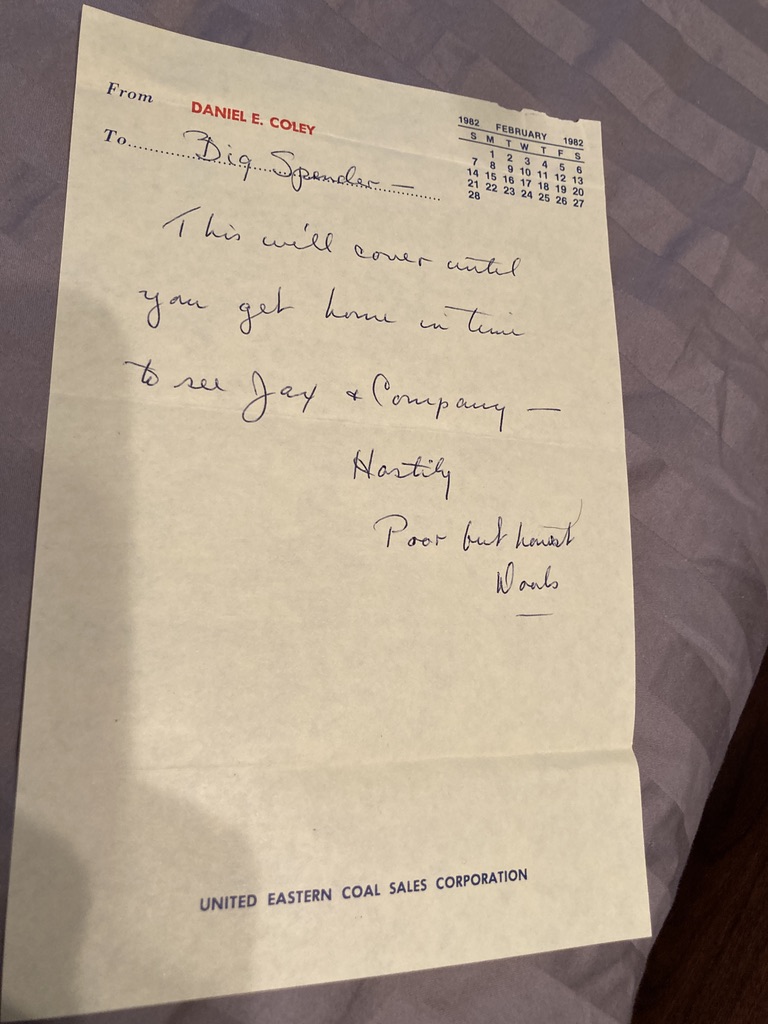 From DANIEL E. COLEY
To Big Spender —
1982 FEBRUARY 1982
S M T W T F S
1 2 3 4 5 6
7 8 9 10 11 12 13
14 15 16 17 18 19 20
21 22 23 24 25 26 27
28
This will cover until
you get home in time
to see Jax & Company —
Hastily
Poor but honest
UNITED EASTERN COAL SALES CORPORATION